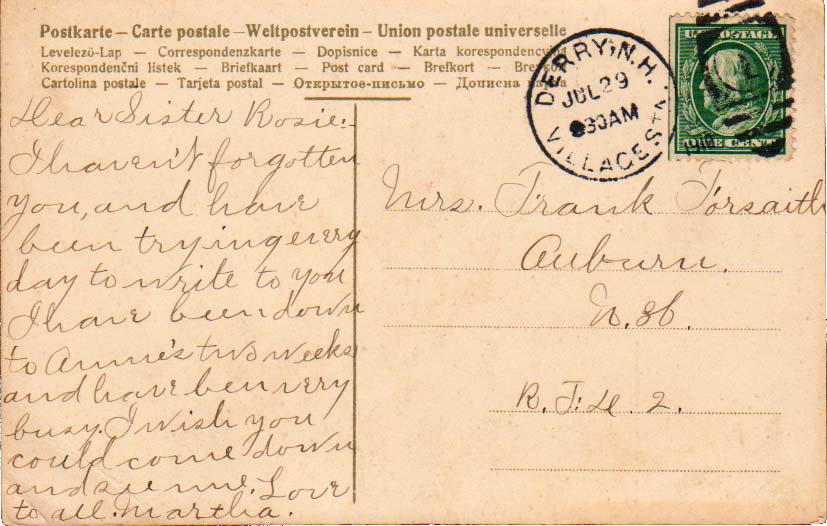 Postkarte — Carte postale — Weltpostverein — Union postale universelle
Levelező-Lap — Correspondenzkarte — Dopisnice — Karta korespondencyjna
Korespondenční listek — Briefkaart — Post card — Brefkort —
Cartolina postale — Tarjeta postal — Открытое-письмо — Дописна
DERRY, N.H.
JUL 29
830AM
VILLAGE STA.
U.S. POSTAGE
ONE CENT
Dear Sister Rosie:-
I haven't forgotten
you, and have
been trying every
day to write to you
I have been down
to Annie's two weeks
and have been very
busy. I wish you
could come down
and see me. Love
to all. Martha.
Mrs. Frank Forsaith
Auburn.
N. H.
R. F. D. 2.